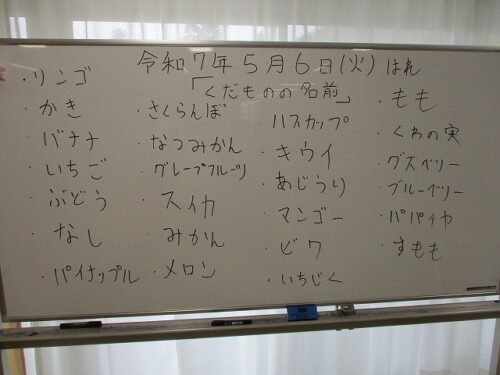 令和7年5月6日(火) はれ
「くだものの名前」
・リンゴ
・かき
・バナナ
・いちご
・ぶどう
・なし
・パイナップル
・さくらんぼ
・なつみかん
・グレープフルーツ
・スイカ
・みかん
・メロン
・ハスカップ
・キウイ
・あじうり
・マンゴー
・ビワ
・いちじく
・もも
・くわの実
・グズベリー
・ブルーベリー
・パパイヤ
・すもも